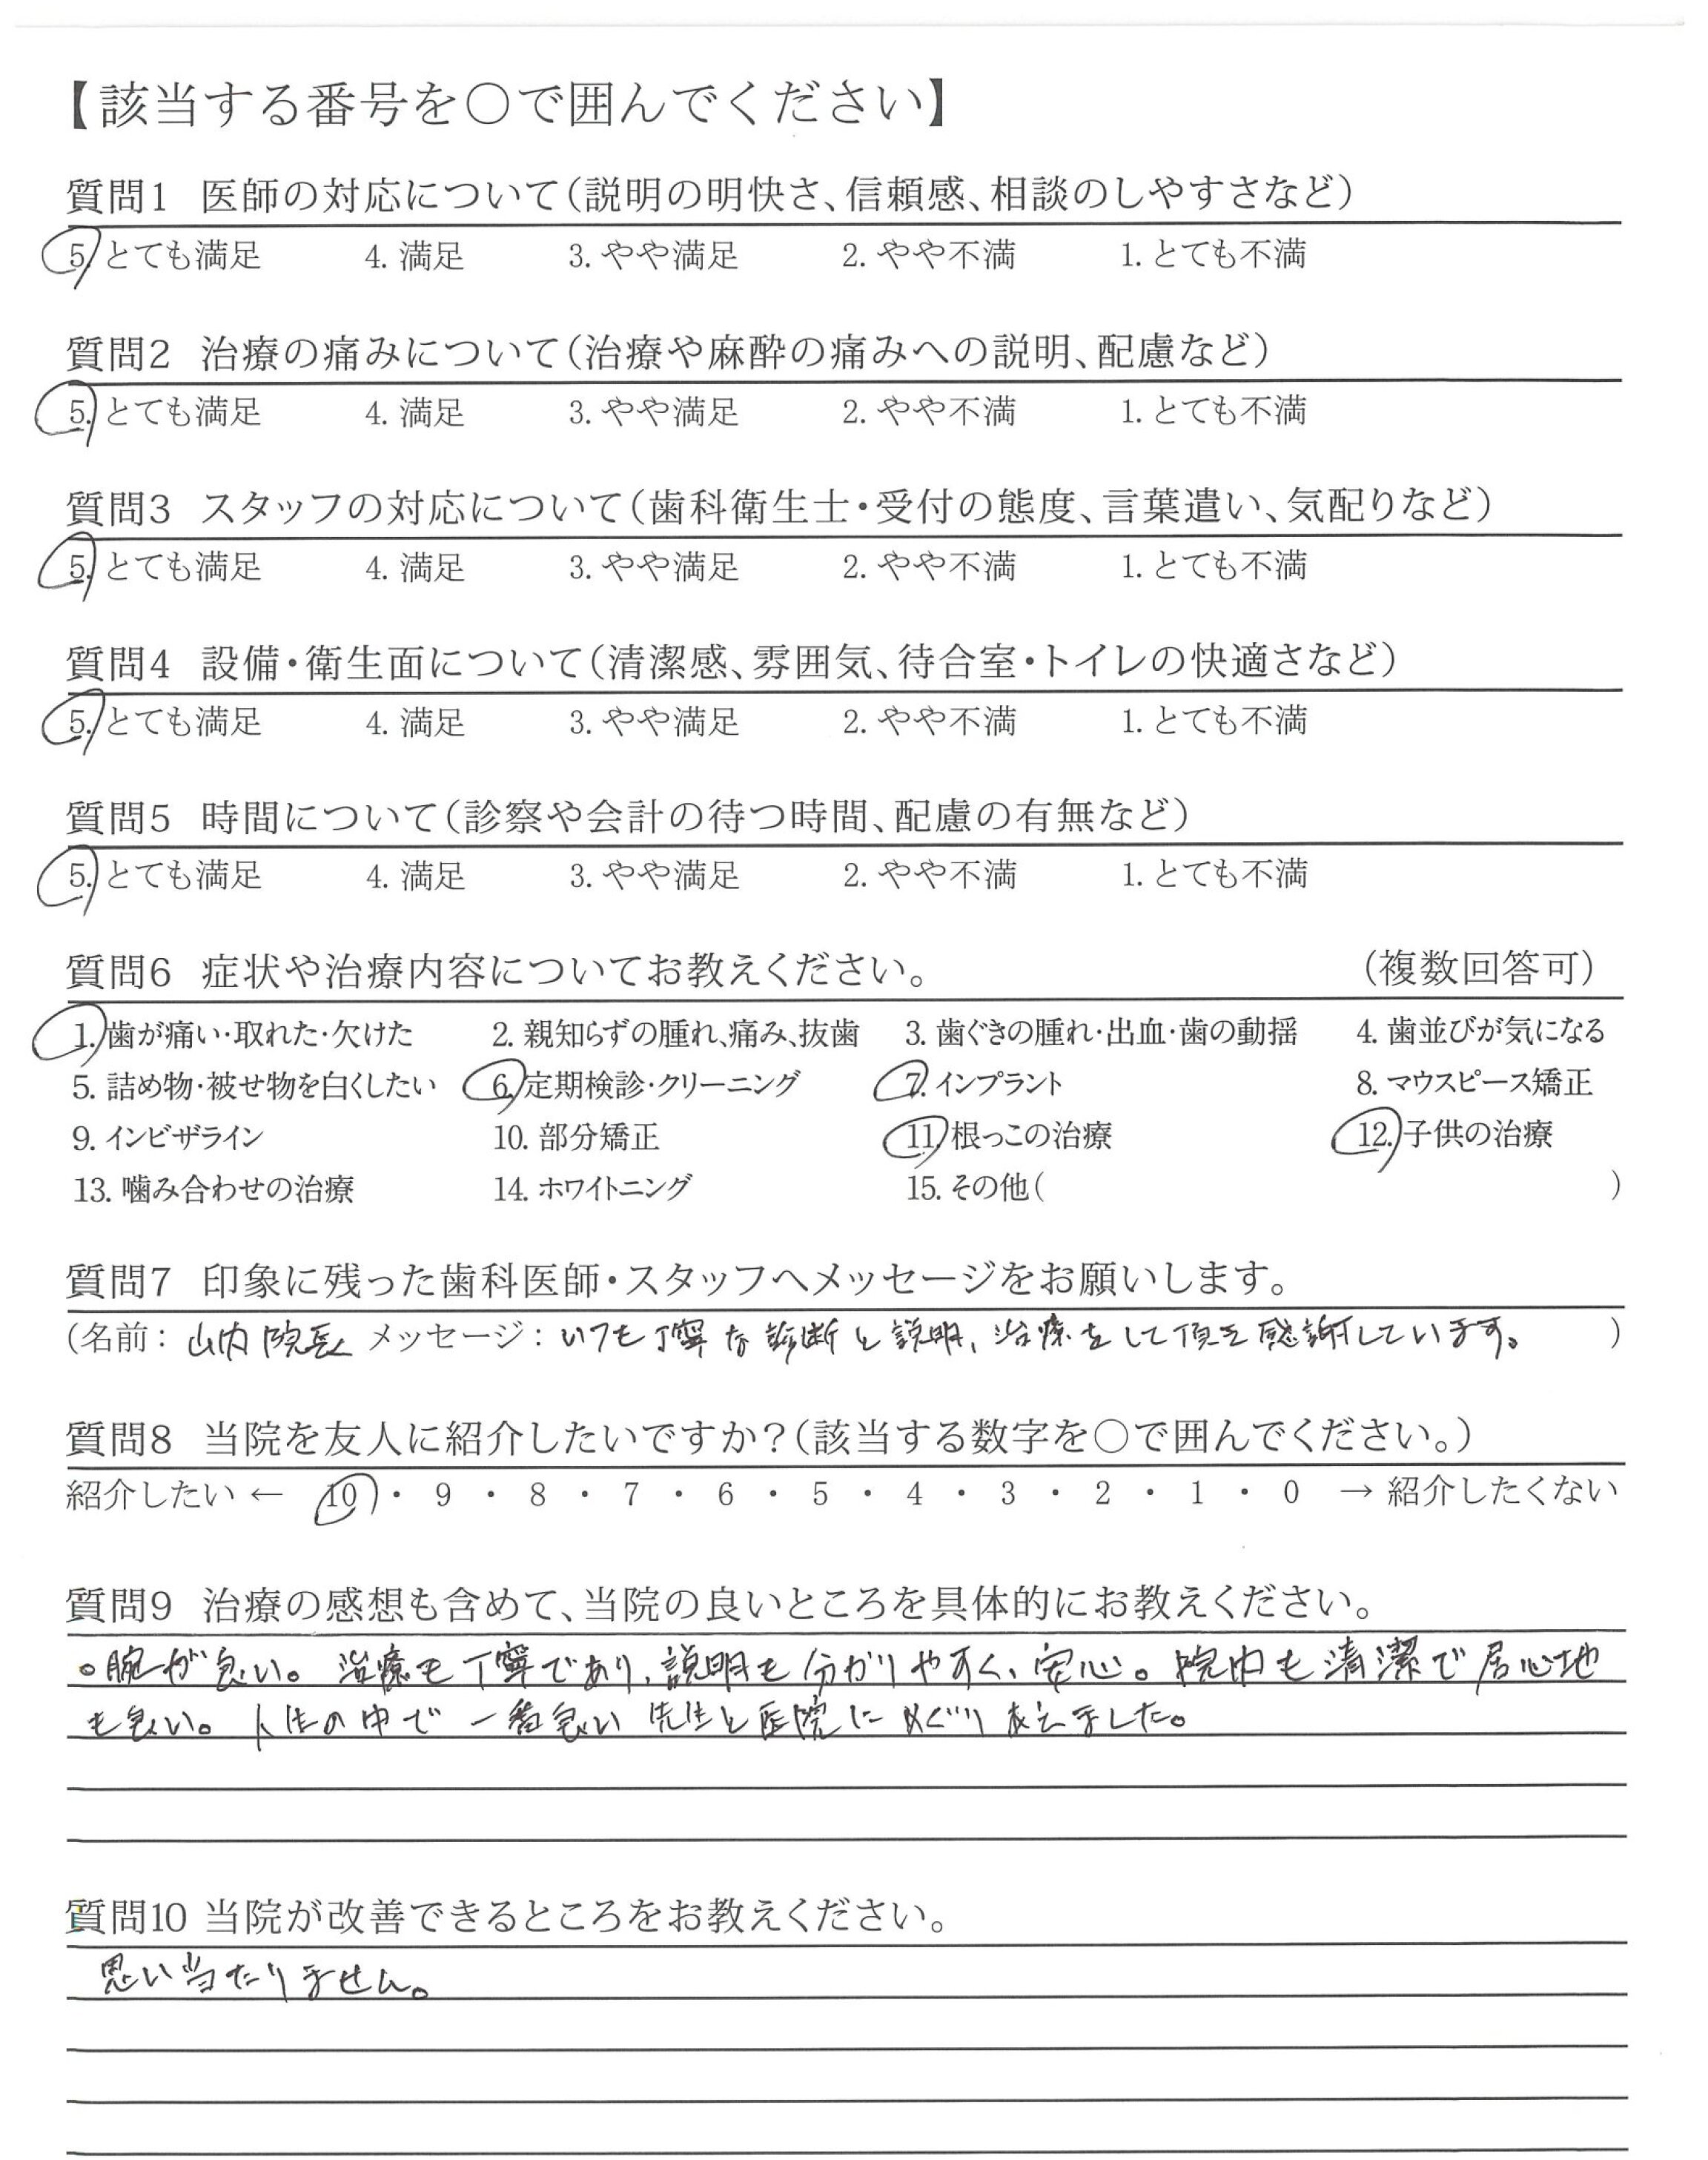 【該当する番号を○で囲んでください】
質問1 医師の対応について(説明の明快さ、信頼感、相談のしやすさなど)
5. とても満足 4. 満足 3. やや満足 2. やや不満 1. とても不満
質問2 治療の痛みについて(治療や麻酔の痛みへの説明、配慮など)
5. とても満足 4. 満足 3. やや満足 2. やや不満 1. とても不満
質問3 スタッフの対応について(歯科衛生士・受付の態度、言葉遣い、気配りなど)
5. とても満足 4. 満足 3. やや満足 2. やや不満 1. とても不満
質問4 設備・衛生面について(清潔感、雰囲気、待合室・トイレの快適さなど)
5. とても満足 4. 満足 3. やや満足 2. やや不満 1. とても不満
質問5 時間について(診察や会計の待つ時間、配慮の有無など)
5. とても満足 4. 満足 3. やや満足 2. やや不満 1. とても不満
質問6 症状や治療内容についてお教えください。 (複数回答可)
1. 歯が痛い・取れた・欠けた 2. 親知らずの腫れ、痛み、抜歯 3. 歯ぐきの腫れ・出血・歯の動揺 4. 歯並びが気になる
5. 詰め物・被せ物を白くしたい 6. 定期検診・クリーニング 7. インプラント 8. マウスピース矯正
9. インビザライン 10. 部分矯正 11. 根っこの治療 12. 子供の治療
13. 噛み合わせの治療 14. ホワイトニング 15. その他( )
質問7 印象に残った歯科医師・スタッフへメッセージをお願いします。
(名前: 山内院長 メッセージ: いつも丁寧な診断と説明、治療をして頂き感謝しています。 )
質問8 当院を友人に紹介したいですか?(該当する数字を○で囲んでください。)
紹介したい ← 10 ・ 9 ・ 8 ・ 7 ・ 6 ・ 5 ・ 4 ・ 3 ・ 2 ・ 1 ・ 0 → 紹介したくない
質問9 治療の感想も含めて、当院の良いところを具体的にお教えください。
○腕が良い。治療も丁寧であり、説明も分かりやすく、安心。院内も清潔で居心地
も良い。人生の中で一番良い先生と医院にめぐり会えました。
質問10 当院が改善できるところをお教えください。
思い当たりません。